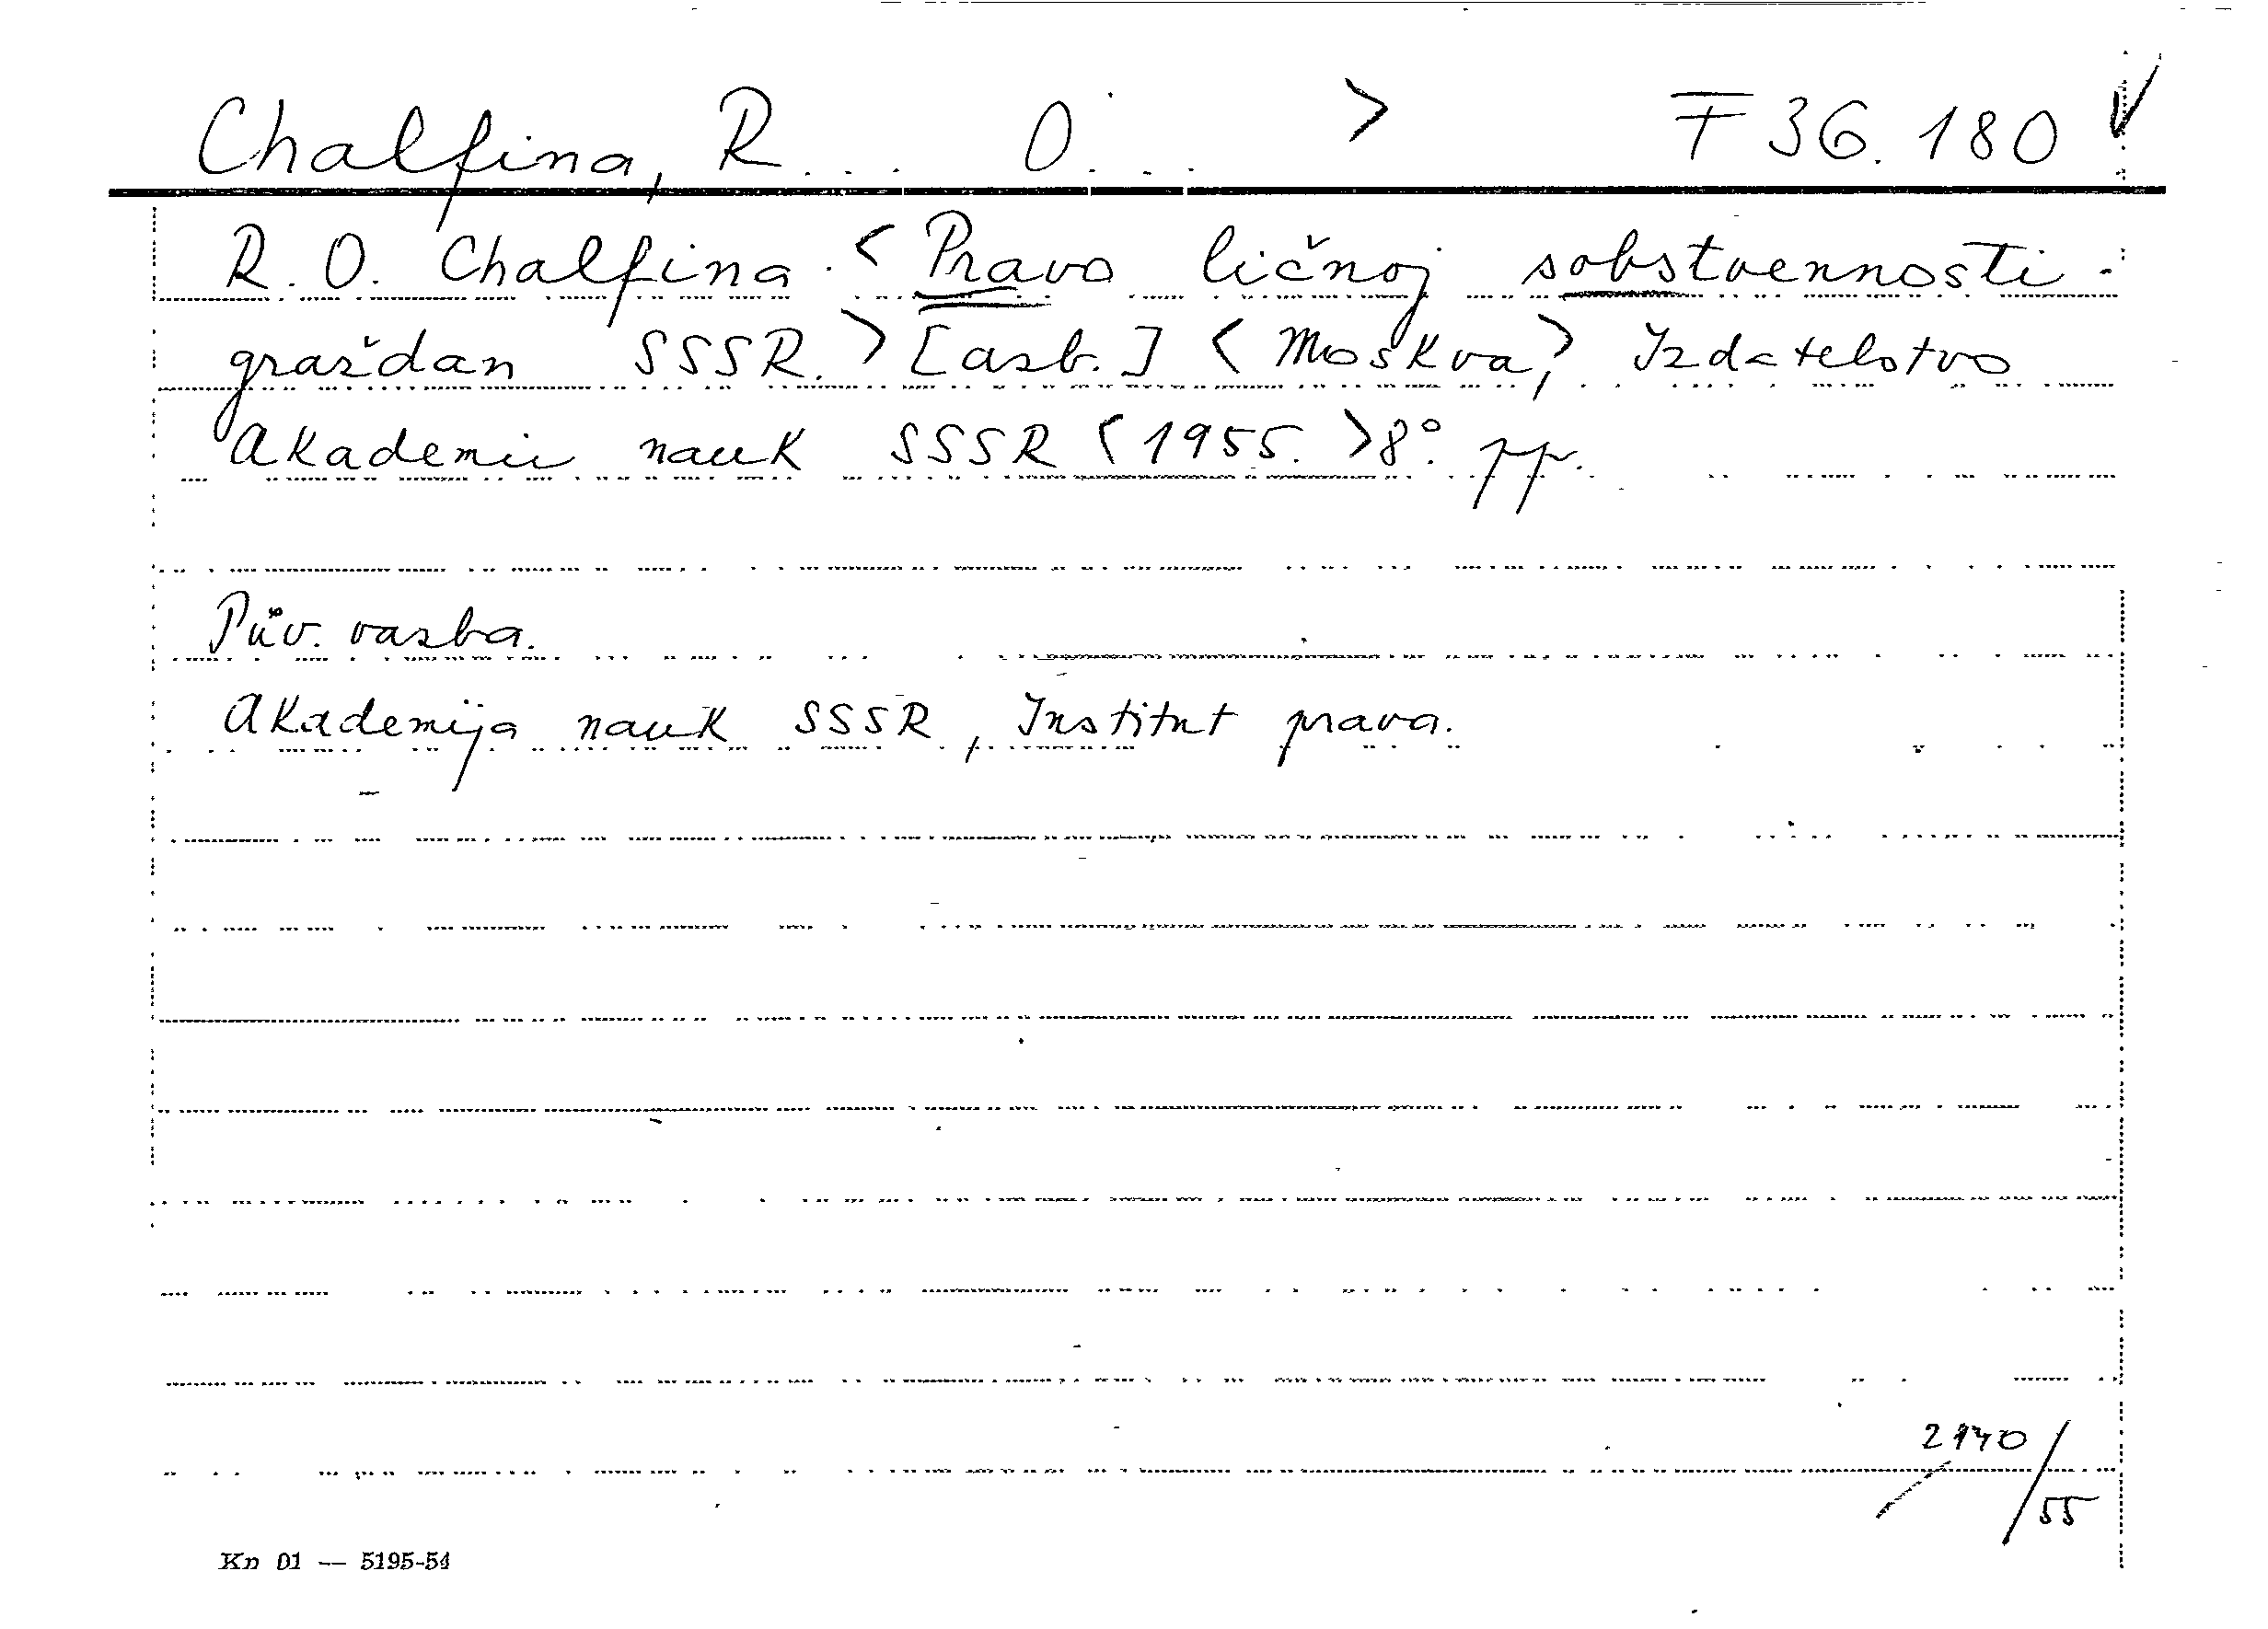 Chalfina, R... O... > F 36.180 V
R. O. Chalfina. < Pravo ličnoj sobstvennosti
graždan SSSR. > [azb.] < Moskva, > Izdatelstvo
Akademii nauk SSSR < 1955. > 8°. pp.
Pův. vazba.
Akademija nauk SSSR, Institut prava.
2140/
55
Kn 01 — 5195-54